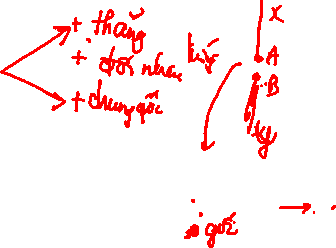 + thẳng
+ đối nhau
+ chung gốc
x
A
B
y
gốc